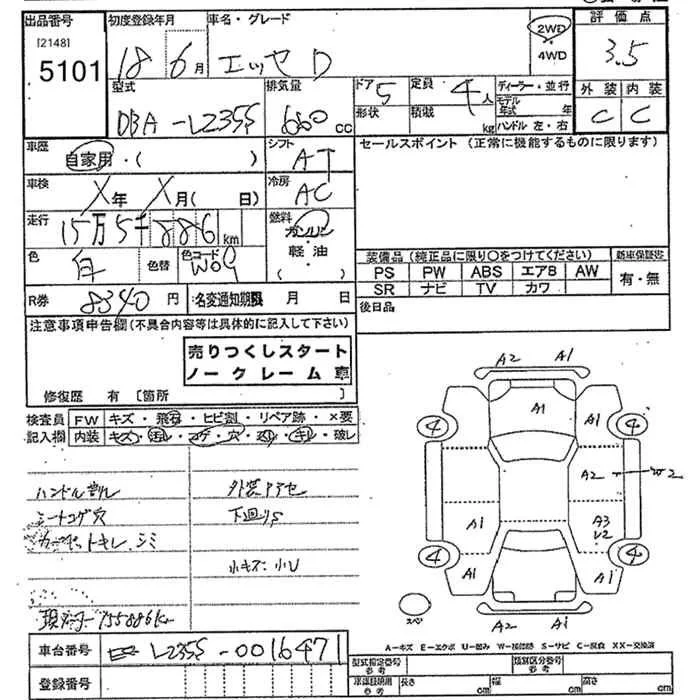 出品番号
[2148]
5101
初度登録年月
18年6月
車名・グレード
エッセ D
2WD
・
4WD
評価点
3.5
型式
DBA-L235S
排気量
660 cc
ドア 5
形状
定員 4人
積載 kg
ディーラー・並行
モデル年式 年
ハンドル 左・右
外装 内装
C C
車歴
自家用・( )
シフト
AT
セールスポイント (正常に機能するものに限ります)
車検
X年 X月( 日)
冷房
AC
走行
15万5千886km
燃料
ガソリン
軽油
( )
色
白
色替
色コード
W09
装備品 (純正品に限り〇をつけてください)
新車保証書
PS PW ABS エアB AW
有・無
SR ナビ TV カワ
R券
8340円
名変通知期限 月 日
後日品
注意事項申告欄(不具合内容等は具体的に記入して下さい)
売りつくしスタート
ノークレーム車
修復歴 有 [箇所 ]
検査員
記入欄
FW キズ・飛石・ヒビ割・リペア跡・×要
内装 キズ・汚レ・コゲ・穴・スレ・キレ・破レ
ハンドルスレ
シートコゲ穴
カーペットキレ、シミ
現メーター155886km
外装アテセ
下回りS
小キズ・小U
A2 A1
A1
A1
4 4
A2
W2
A1
A3
U2
4 4
A1
A1
A2 A1
スペア
A-キズ E-エクボ U-凹み W-補修跡 S-サビ C-腐食 XX-交換済
車台番号
L235S-0016471
登録番号
型式指定番号
参考
類別区分番号
参考
車庫証明用
参考
長さ cm
幅 cm
高さ cm